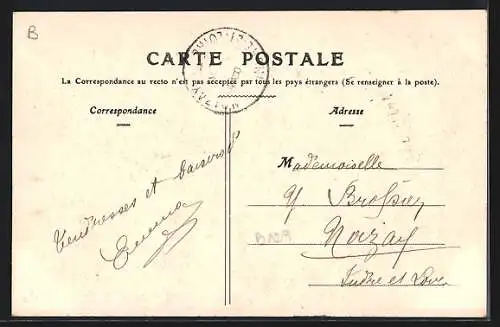 B
CARTE POSTALE
La Correspondance au recto n'est pas acceptée par tous les pays étrangers (Se renseigner à la poste).
Correspondance
Adresse
Tendresses et baisers
Emma
Mademoiselle
Y. Brossay
Noizay
Indre et Loire